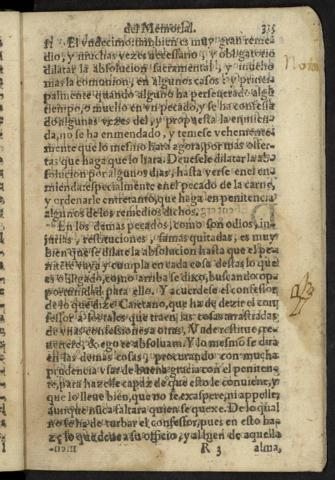 del Memorial. 335
11 El vndecimo tambien es muy gran reme-
dio, y muchas vezes necessario, y obligatorio
dilatar la absolucion sacramental, y mucho
mas la comunion, en algunos casos: y princi-
palmente quando alguno ha perseuerado algũ
tiempo, o mucho en vn pecado, y se ha confessa
do algunas vezes del, y propuesta la enmien-
da, no se ha enmendado, y temese vehemente-
mente que lo mesmo hara agora, por mas ofer-
tas que haga que lo hara. Deuesele dilatar la ab-
solucion por algunos dias, hasta verse en el en-
mienda: especialmente en el pecado de la carne,
y ordenarle entretanto, que haga en penitencia
algunos de los remedios dichos.
En los demas pecados, como son odios, in-
jurias, restituciones, famas quitadas, es muy
bien que se dilate la absolucion hasta que el pe-
nitente vaya y cumpla en cada cosa destas lo que
es obligado, como arriba se dixo, buscando opor-
tunidad para ello. Y acuerdese el confessor
de lo que dize Caietano, que ha de dezir el con-
fessor a los tales que traen las cosas arrastradas
de vnas confessiones a otras, Vade restitue, re-
uertere, & ego te absoluam. Y lo mesmo se dira
en las demas cosas, procurando con mucha
prudencia vsar de buena gracia con el peniten-
te, para hazelle capaz de que esto le conuiene, y
que lo lleue bien, que no se exaspere, ni appelle,
aunque nũca faltara quien se quexe. De lo qual
no se ha de turbar el confessor, pues en esto ha-
ze lo que deue a su officio, y al bien de aquella
R 3 alma,
Nota